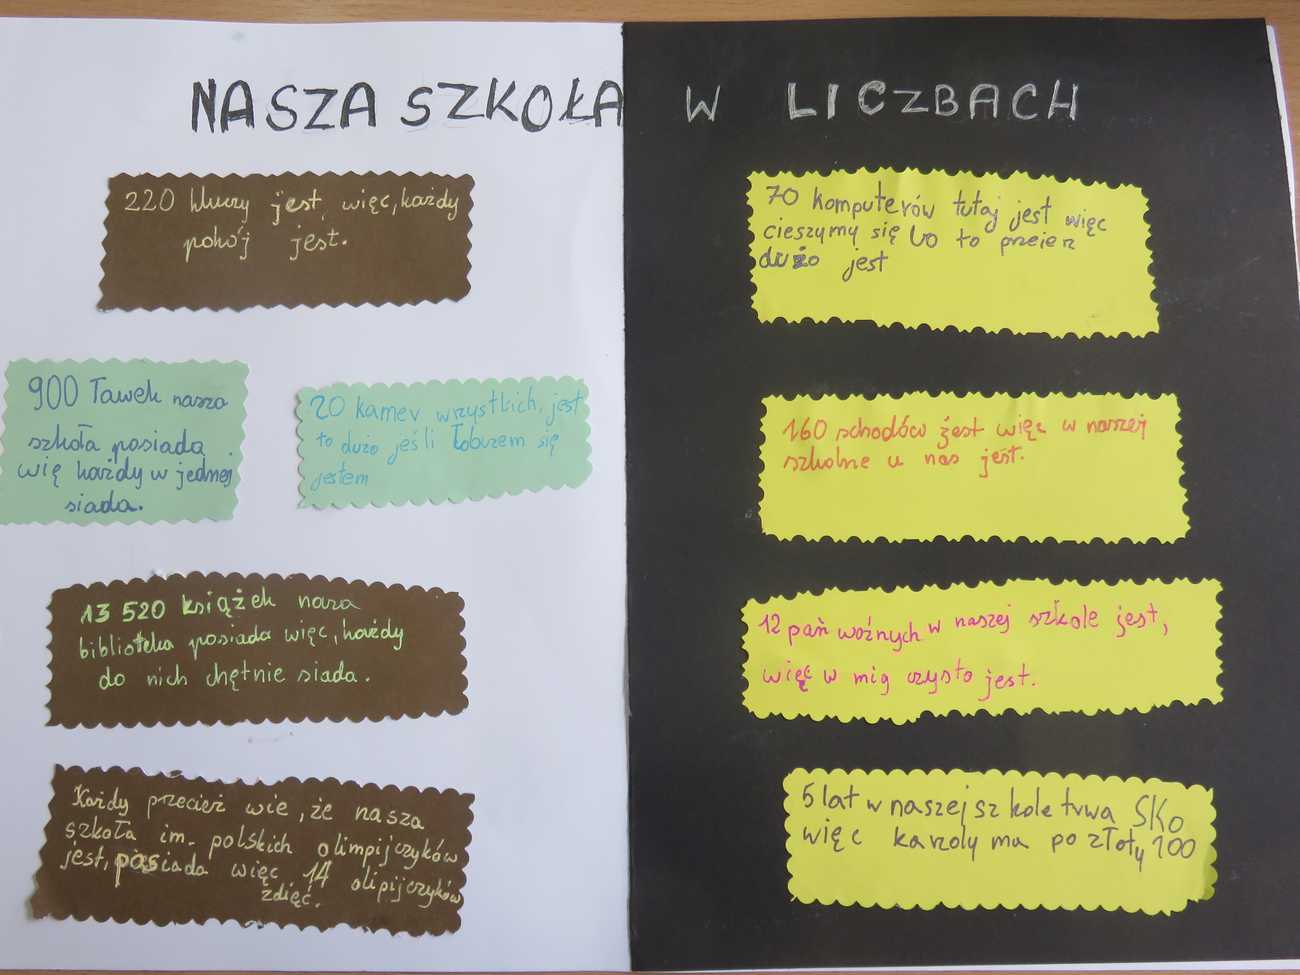 NASZA SZKOŁA W LICZBACH
220 kluczy jest, więc, każdy
pokój jest.
900 Ławek nasza
szkoła posiada
wię każdy w jednej
siada.
20 kamer wszystkich, jest
to dużo jeśli łobuzem się
jestem
13 520 książek nasza
biblioteka posiada więc, każdy
do nich chętnie siada.
Każdy przecież wie, że nasza
szkoła im. polskich olimpijczyków
jest, posiada więc 14 olipijczyków
zdięć.
70 komputerów tutaj jest więc
cieszymy się bo to przeież
dużo jest
160 schodów jest więc w naszej
szkolne u nas jest.
12 pań woźnych w naszej szkole jest,
więc w mig czysto jest.
5 lat w naszej szkole trwa SKO
więc każdy ma po złoty 100